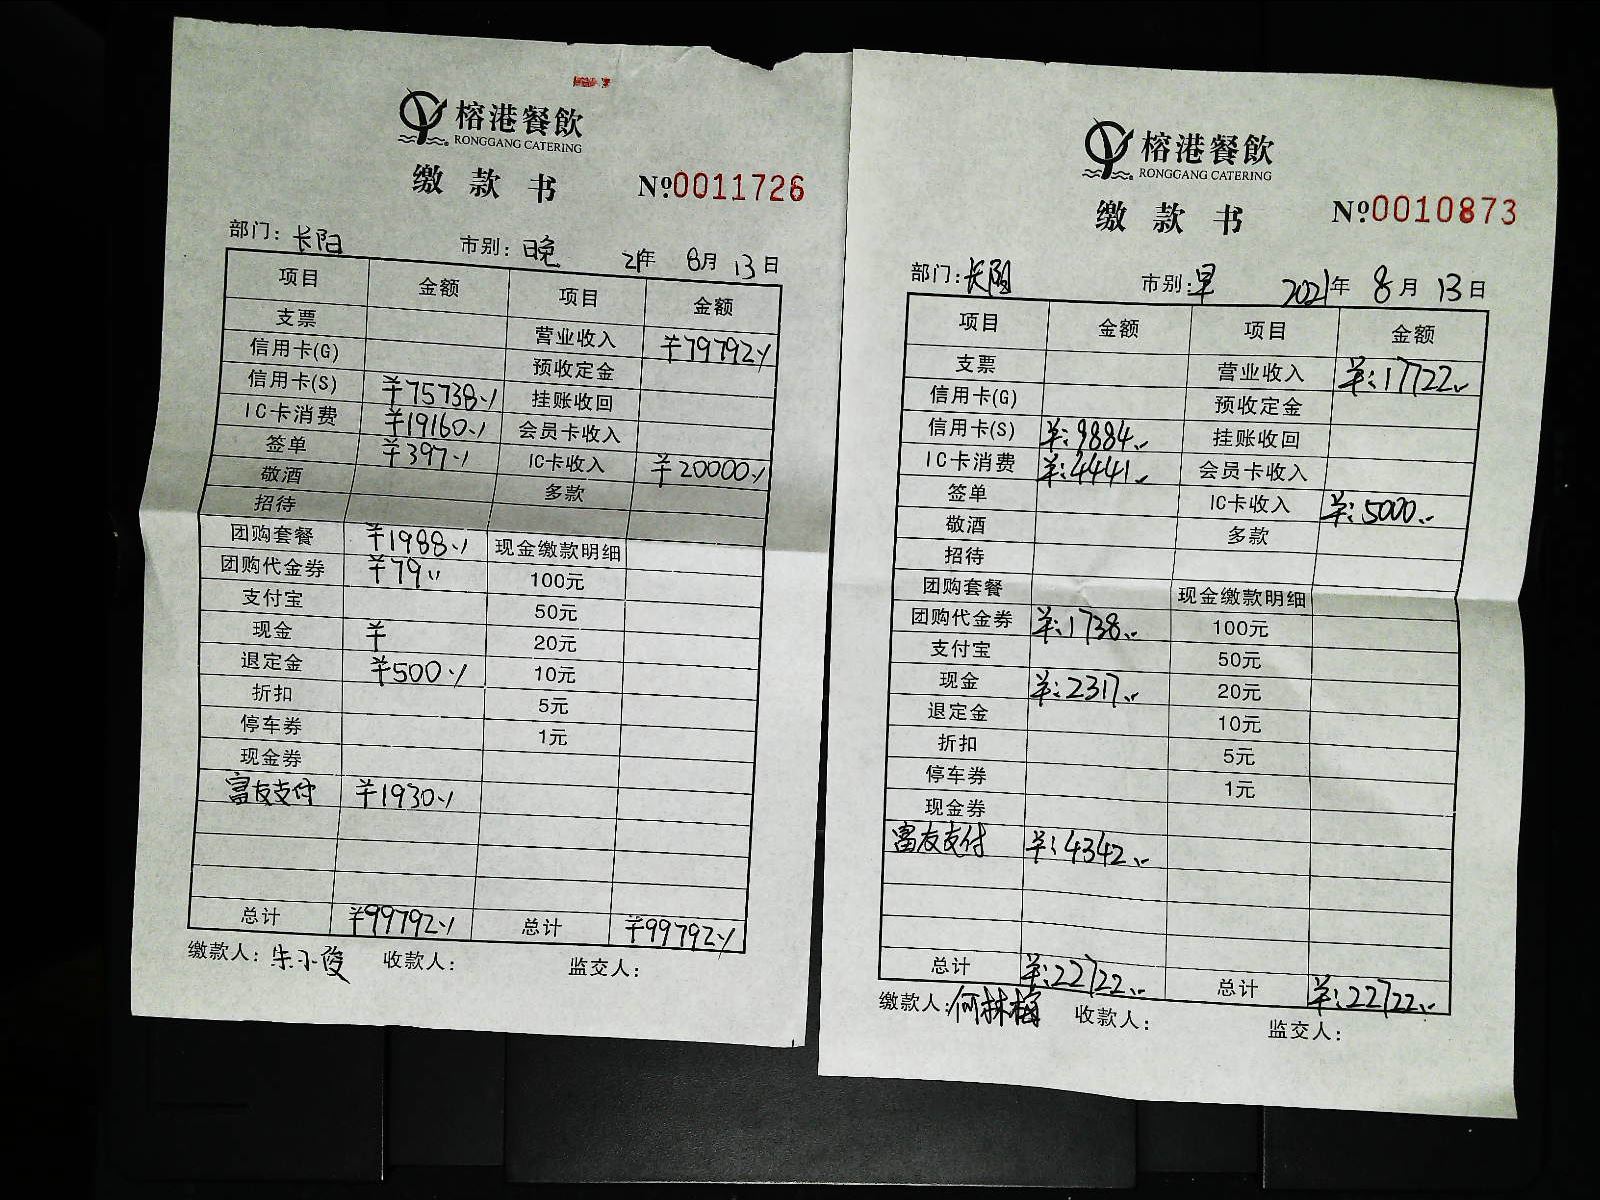 榕港餐飲
RONGGANG CATERING
缴款书 №0011726
部门：长阳 市别：晚 21年 8月 13日
项目 金额 项目 金额
支票 营业收入 ¥79792
信用卡(G) 预收定金
信用卡(S) ¥75738 挂账收回
IC卡消费 ¥19160 会员卡收入
签单 ¥397 IC卡收入 ¥20000
敬酒 多款
招待
团购套餐 ¥1988 现金缴款明细
团购代金券 ¥79 100元
支付宝 50元
现金 ¥ 20元
退定金 ¥500 10元
折扣 5元
停车券 1元
现金券
富友支付 ¥1930
总计 ¥99792 总计 ¥99792
缴款人：朱小俊 收款人： 监交人：
榕港餐飲
RONGGANG CATERING
缴款书 №0010873
部门：长阳 市别：早 2021年 8月 13日
项目 金额 项目 金额
支票 营业收入 ¥：17722
信用卡(G) 预收定金
信用卡(S) ¥：9884 挂账收回
IC卡消费 ¥：4441 会员卡收入
签单 IC卡收入 ¥：5000
敬酒 多款
招待
团购套餐 现金缴款明细
团购代金券 ¥：1738 100元
支付宝 50元
现金 ¥：2317 20元
退定金 10元
折扣 5元
停车券 1元
现金券
富友支付 ¥：4342
总计 ¥：22722 总计 ¥：22722
缴款人：何林梅 收款人： 监交人：